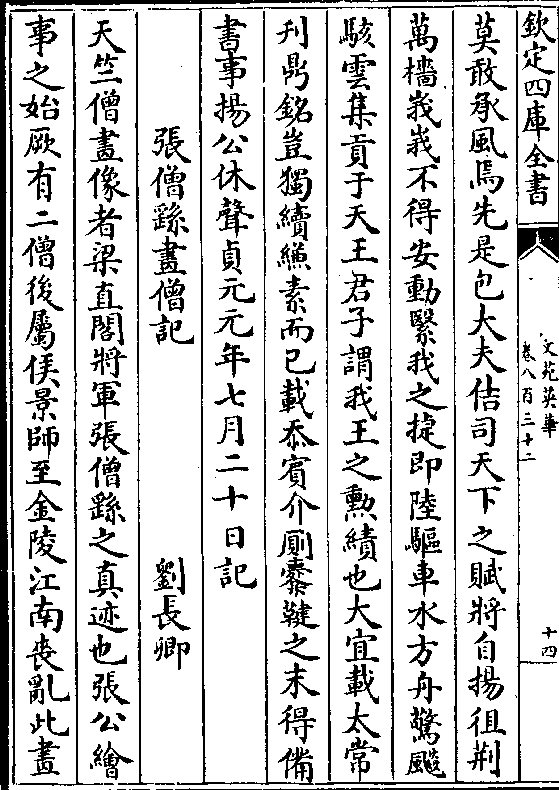 欽定四庫全書
文苑英華
卷八百三十二
十四
莫敢承風焉先是包大夫佶司天下之賦將自揚徂荆
萬檣峩峩不得安動繄我之捷即陸驅車水方舟驚飈
駭雲集貢于天王君子謂我王之勲績也大宜載太常
刋鼎銘豈獨續縑素而已載忝賓介厠櫜鞬之末得備
書事揚公休聲貞元元年七月二十日記
張僧繇畫僧記 劉長卿
天竺僧畫像者梁直閣將軍張僧繇之真迹也張公繪
事之始厥有二僧後屬侯景師至金陵江南喪亂此畫